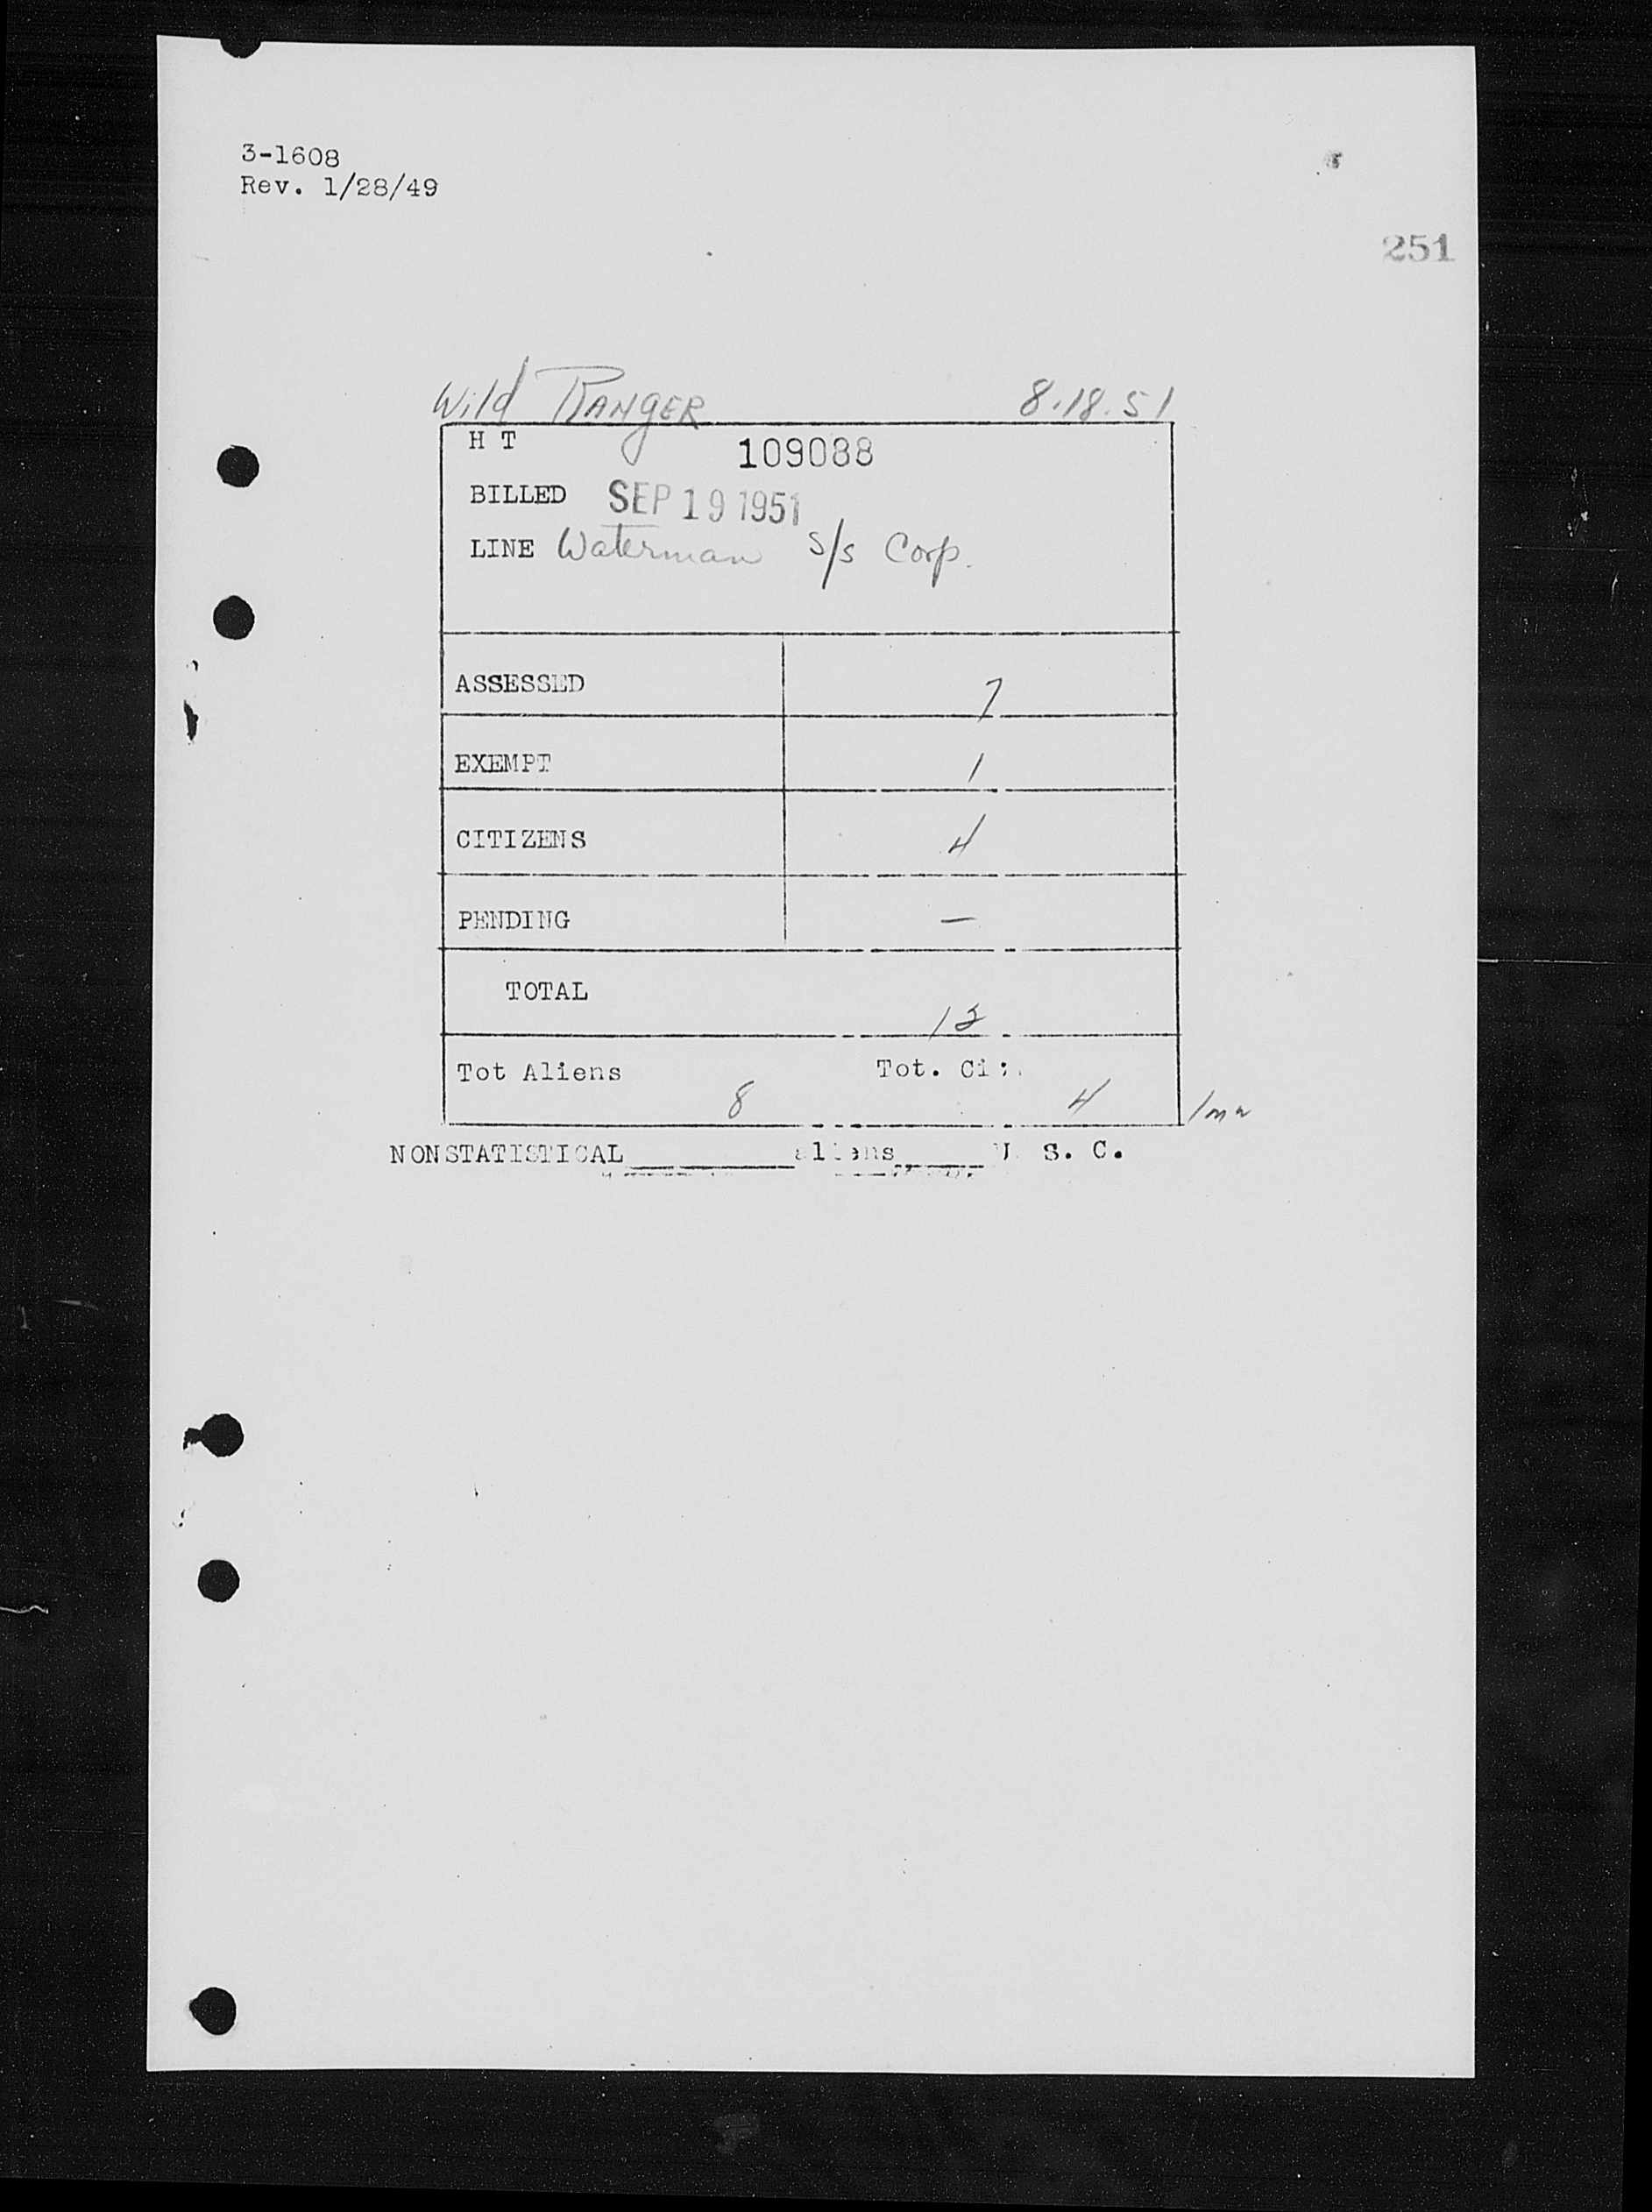 3-1608
Rev. 1/28/49
251
Wild RANGER 8.18.51
H T 109088
BILLED SEP 19 1951
LINE Waterman S/S Corp.
ASSESSED 7
EXEMPT 1
CITIZENS 4
PENDING —
TOTAL 12
Tot Aliens 8 Tot. Cit. 4
NONSTATISTICAL aliens U. S. C.